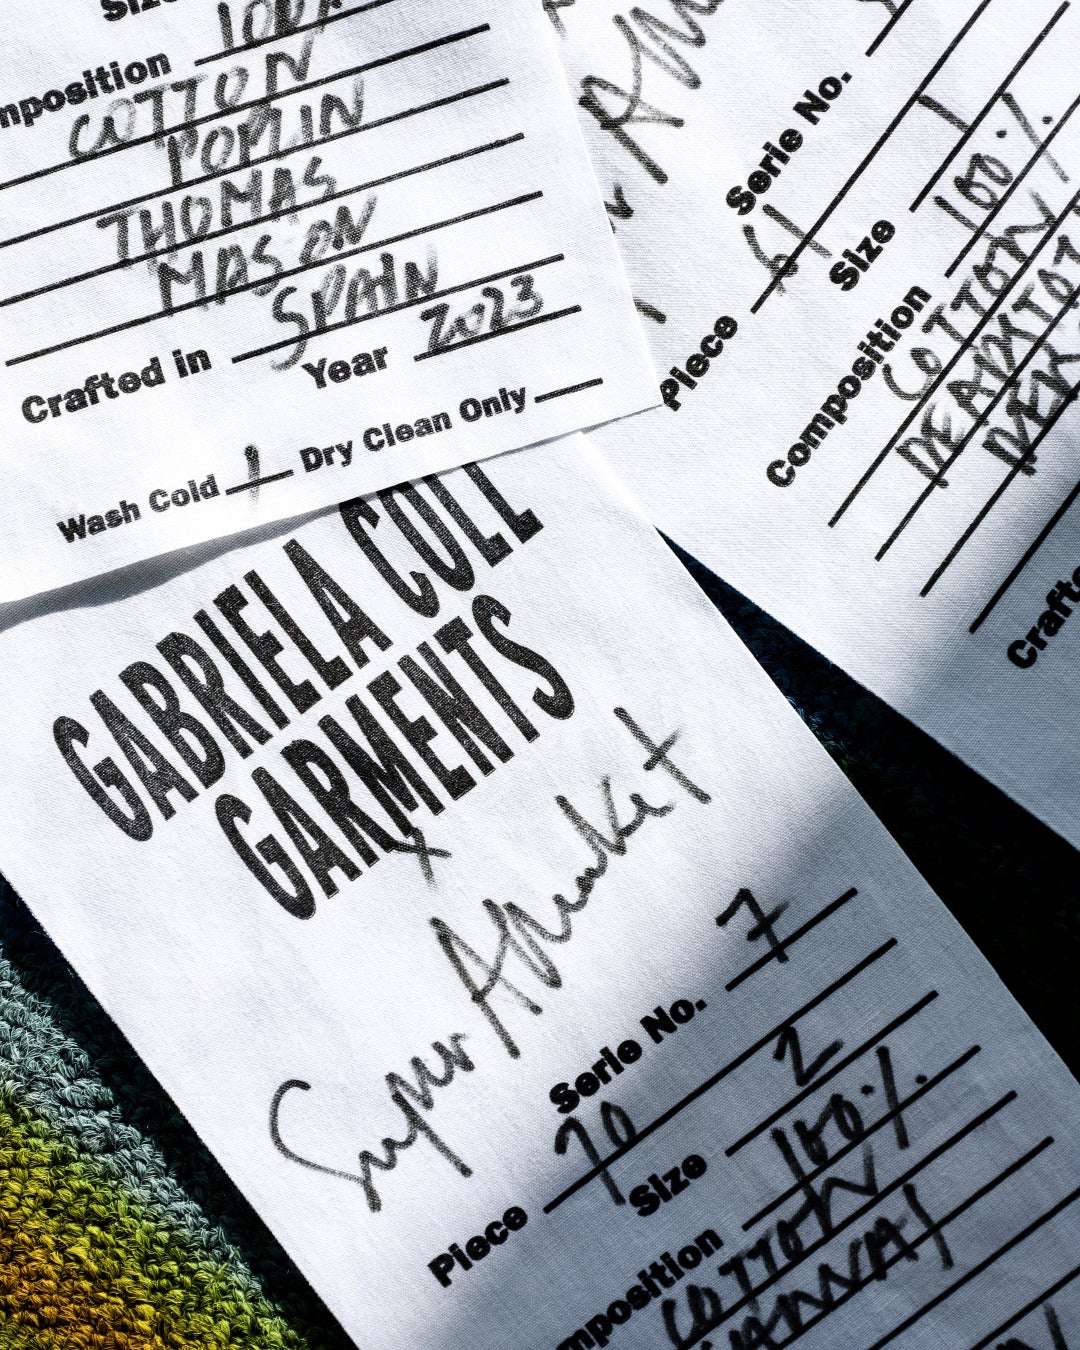 Size
Composition 100%
COTTON
POPLIN
THOMAS
MASON
Crafted in SPAIN Year 2023
Wash Cold 1 Dry Clean Only
Serie No.
Piece 61 Size 1
Composition 100%
COTTON
Crafted
GABRIELA COLL
GARMENTS
x
Super Market
Serie No. 7
Piece 70 Size 2
Composition 100%
COTTON